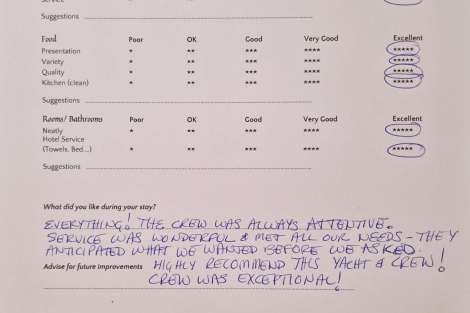 Suggestions
Food Poor OK Good Very Good Excellent
Presentation * ** *** **** *****
Variety * ** *** **** *****
Quality * ** *** **** *****
Kitchen (clean) * ** *** **** *****
Suggestions
Rooms/ Bathrooms Poor OK Good Very Good Excellent
Neatly * ** *** **** *****
Hotel Service
(Towels, Bed...) * ** *** **** *****
Suggestions
What did you like during your stay?
EVERYTHING! THE CREW WAS ALWAYS ATTENTIVE.
SERVICE WAS WONDERFUL & MET ALL OUR NEEDS - THEY
ANTICIPATED WHAT WE WANTED BEFORE WE ASKED.
Advise for future improvements HIGHLY RECOMMEND THIS YACHT & CREW!
CREW WAS EXCEPTIONAL!